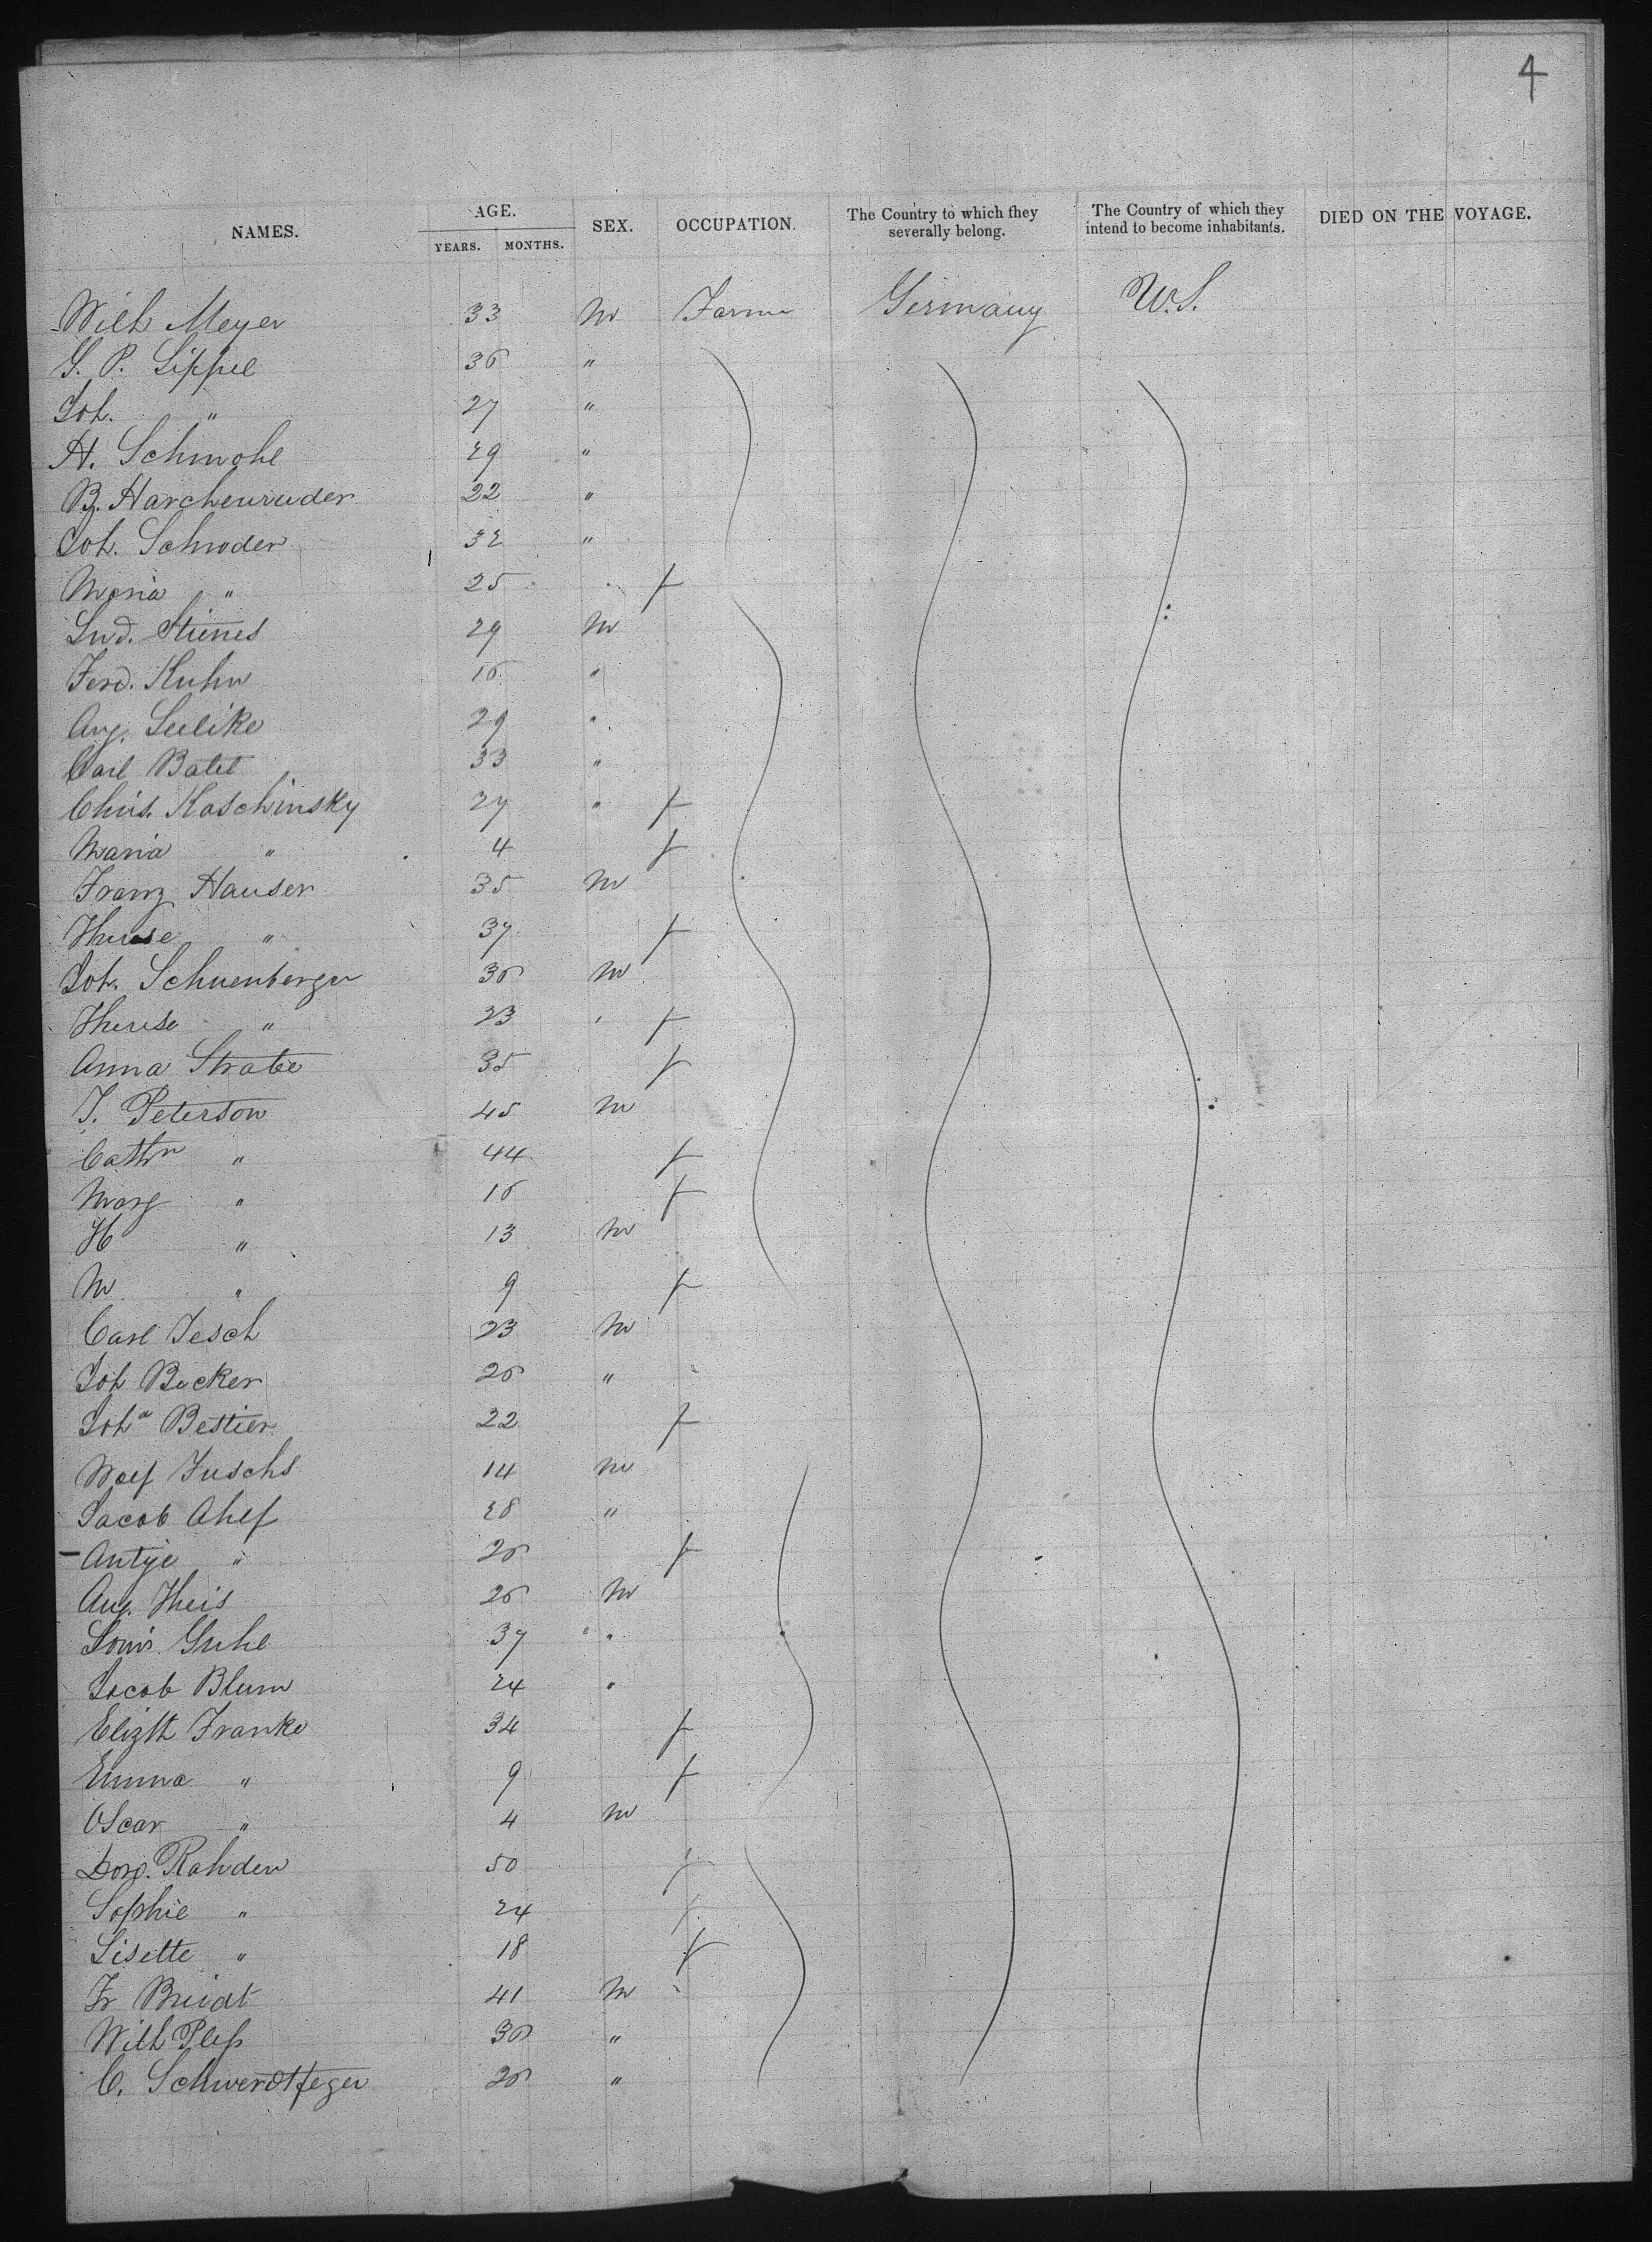 4
NAMES. AGE. SEX. OCCUPATION. The Country to which they severally belong. The Country of which they intend to become inhabitants. DIED ON THE VOYAGE.
YEARS. MONTHS.
Wilh Meyer 33 M Farmer Germany U.S.
G. P. Lippel 36 "
Joh. " 27 "
H. Schmohl 29 "
B. Harchenruder 22 "
Joh. Schroder 32 "
Maria " 25 f
Lud. Stienes 29 M
Ferd. Kuhn 16 "
Aug. Leelike 29 "
Carl Batel 33 "
Chris. Koschinsky 27 " f
Maria " 4 f
Franz Hauser 35 M
Therese " 37 f
Joh. Schuenberger 36 M
Therese " 23 f
Anna Strate 35 f
J. Peterson 45 M
Cathn " 44 f
Marg " 16 f
H " 13 M
M " 9 f
Carl Jesch 23 M
Joh Becker 26 "
Joha Bettier 22 f
Wolf Fuschs 14 M
Jacob Ahlf 28 "
Antje " 26 f
Aug. Theis 26 M
Louis Guhl 37 "
Jacob Blum 24 "
Elizth Franke 34 f
Emma " 9 f
Oscar " 4 M
Doro. Rahden 50 f
Sophie " 24 f
Lisette " 18 f
Fr Breidt 41 M
Wilh Pless 36 "
C. Schwerdtfeger 26 "